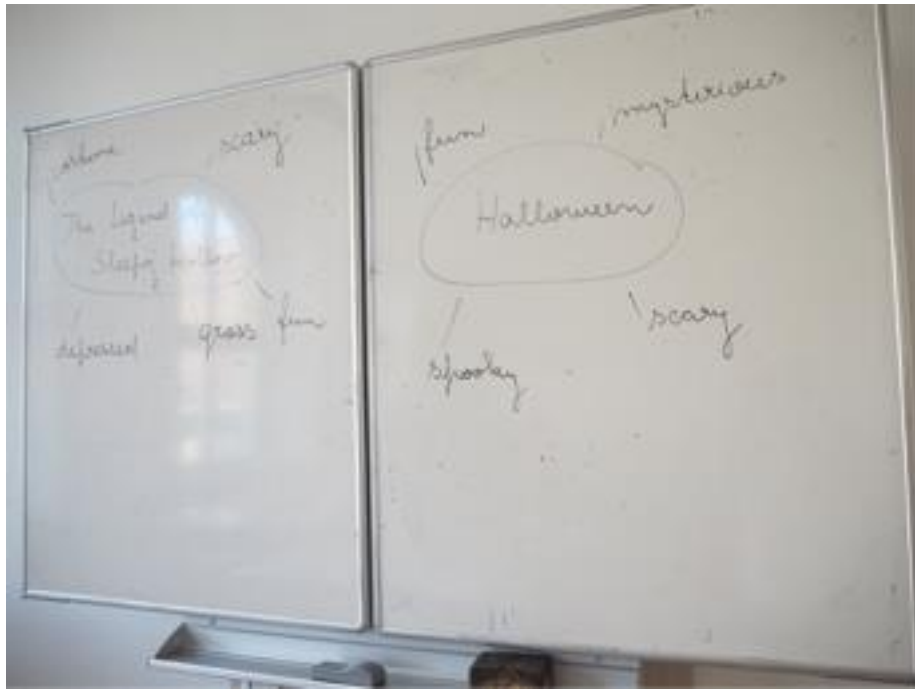 scary
The Legend
Sleepy Hollow
depressed
gross fun
fun
mysterious
Halloween
spooky
scary